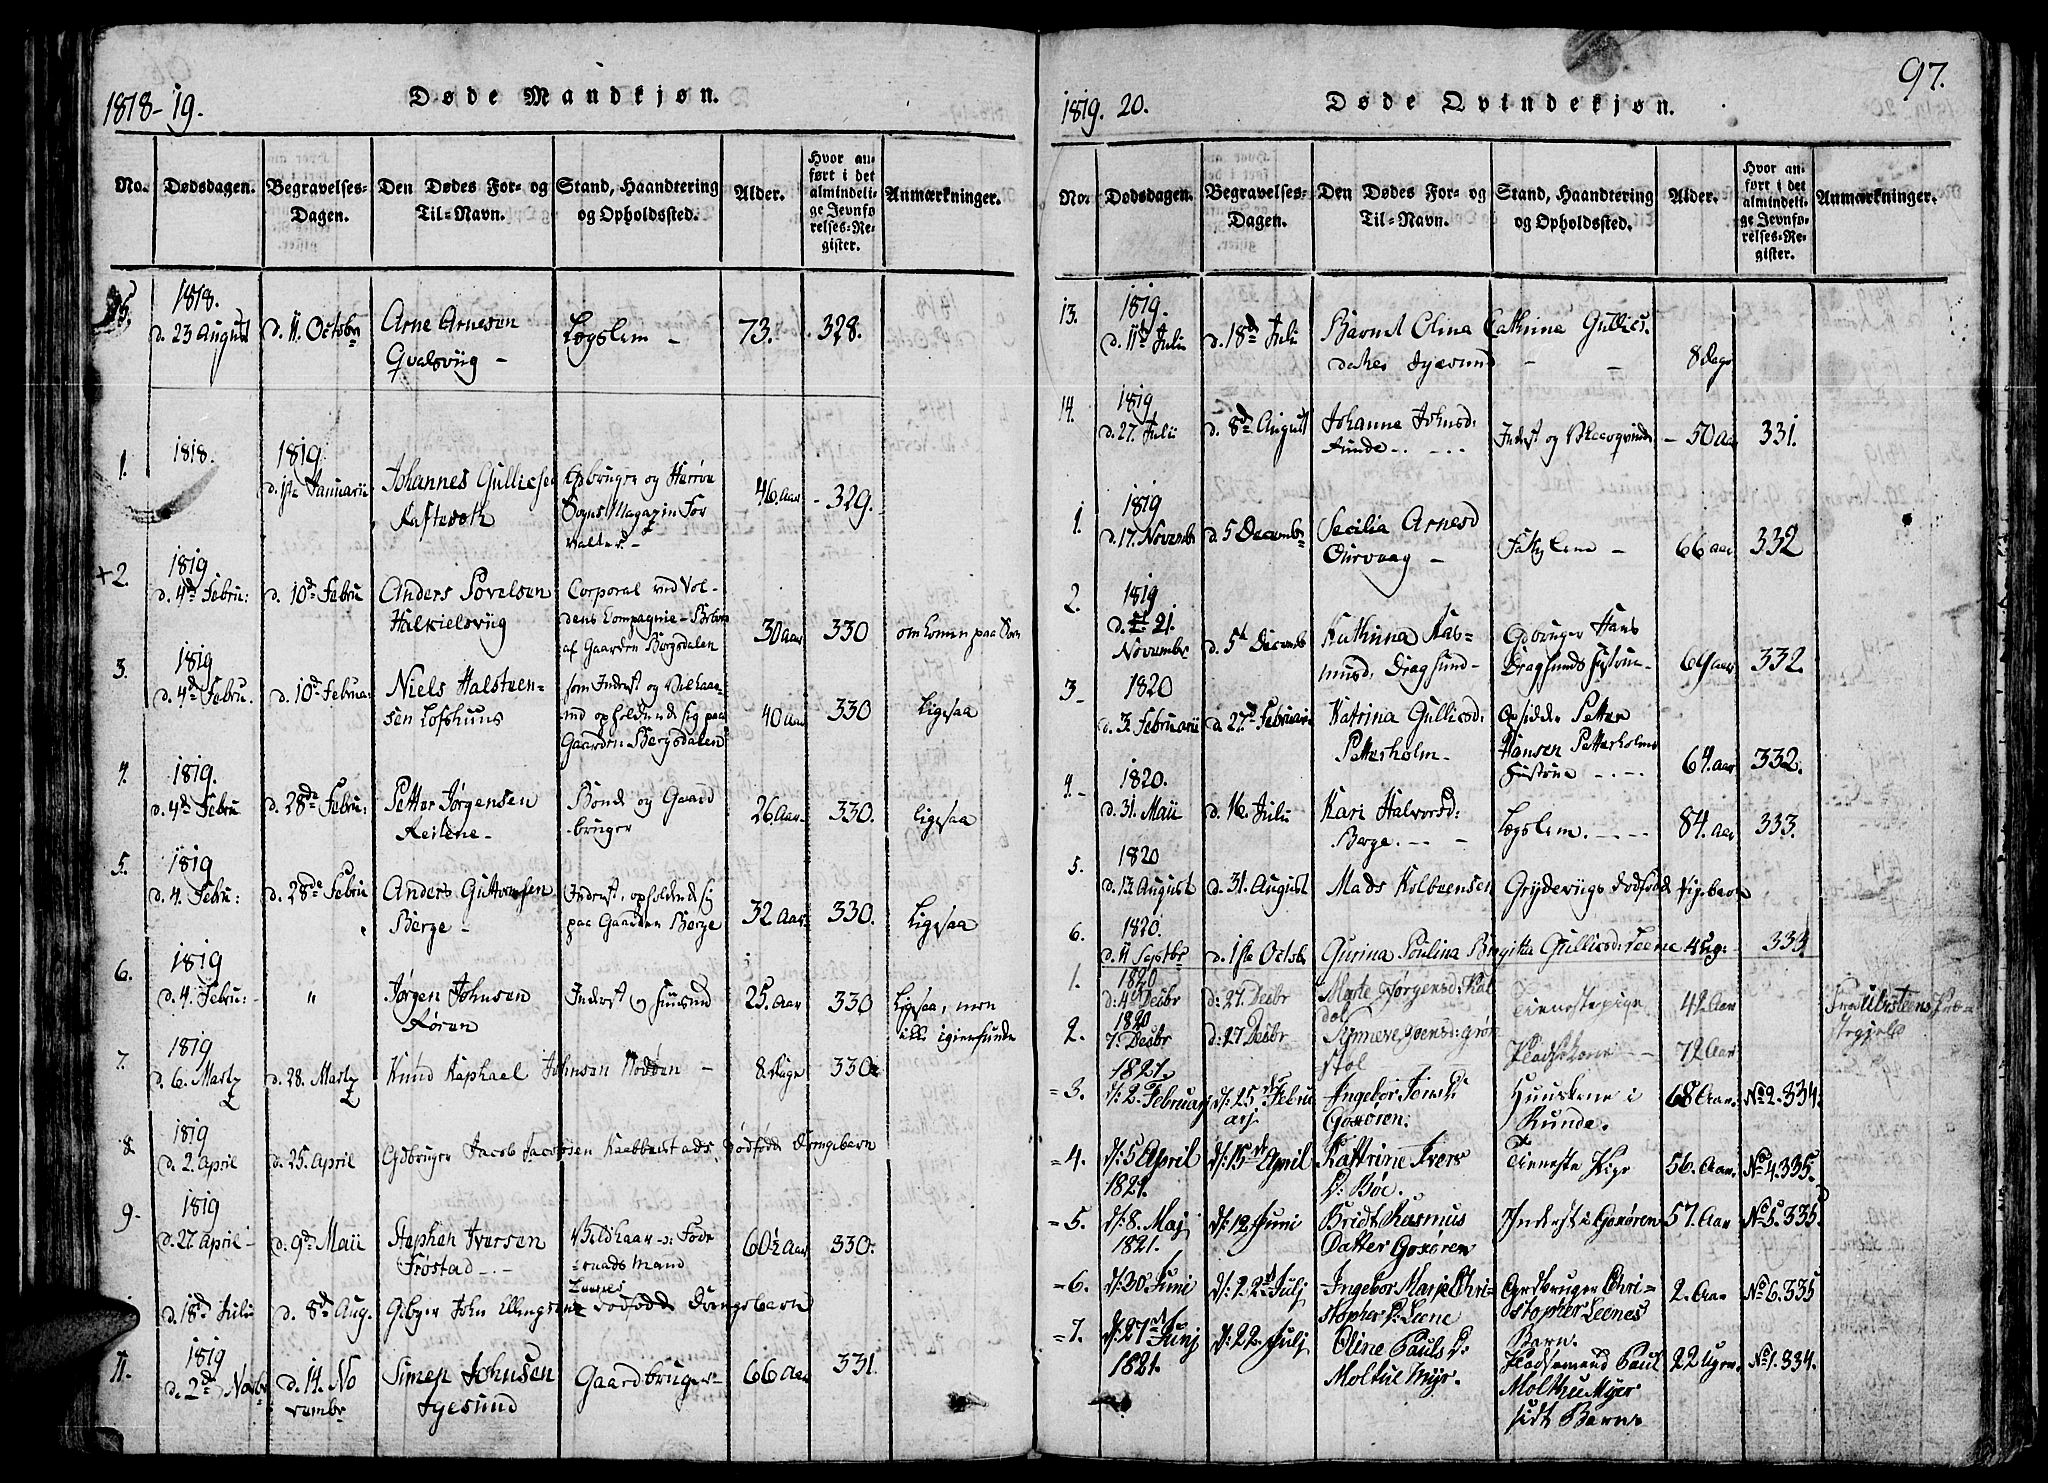 1818-19.
Døde Mandkjøn.
No.
Dødsdagen.
Begravelses-
Dagen.
Den Dødes For- og
Til-Navn.
Stand, Haandtering
og Opholdssted.
Alder.
Hvor an-
ført i det
almindeli-
ge Jevnfø
relses-Re-
gister.
Anmærkninger.
1818.
d. 23 August
d. 11. Octobr
Arne Arnesen
Qvalsviig -
Lægslem -
73.
328.
1.
1818.
1819
d. 1ste Januarii
Johannes Gullicsen
Gdbruger og Herrøe
Sogns Magazin For
valter
46. Aar
329.
+2.
1819
d. 4de Febru:
d. 10de Febru
Anders Sorelsen
Halkielsviig
Corporal ved Vol-
dens Compagnie
af Gaarden Bergsdalen
30 Aar
330
omkomen paa Søen
3.
1819
d. 4de Febru.
d. 10de Februa:
Niels Halsteen-
sen Løfshuns
som Inderst og Vilkaar-
opholdende sig paa
Gaarden Bergsdalen
40 Aar
330
Ligesaa
4.
1819.
d. 4de Febru
d. 28de Febru:
Petter Jørgensen
Bonde og Gaard
bruger
26. Aar-
330.
Ligesaa
5.
1819
d. 4. Febru:
d. 28de Febru
Anders Guttormsen
Berge -
Inderst, opholdende sig
paa Gaarden Berge
32 Aar
330.
Ligesaa
6.
1819
d. 4. Febru:-
"
Jørgen Johnsen
Røren
Inderst og Huusmd
25. Aar
330
Ligesaa, men
ikke igienfunden
7.
1819
d. 6. Marty
d. 28. Marty
Knud Raphael Johnsen Nødden -
8. Dage
330
8
1819
d. 2. April
d. 25. April
Gdbruger Jacob Jacobsen Kaabbestads, dødfødt Drengebarn
9-
1819
d. 27. April-
d. 9de Maii
Stephen Iversen
Frøstad -.-
Vilkaar- Føde
raads Mand
60½ Aar
330.
d. 18de Julii
d. 8de Aug.
Gdbger John Ellingsen Leenes dødfødde Drengebarn
11.
1819
d. 2de Novbr
d. 14. No
vembr
Simen Johnsen
Igesund
Gaardbruger-
66 Aar
331.
97.
1819. 20.
Døde Qvindekjøn.
No.
Dødsdagen.
Begravelses-
Dagen.
Den Dødes For- og
Til-Navn.
Stand, Haandtering
og Opholdssted.
Alder.
Hvor an-
ført i det
almindeli-
ge Jevnfø-
relses-Re-
gister.
Anmærkninger.
13.
1819.
d. 11te Julii
d. 18de Julii
Barnet Olina Cathrina Gullics.
8 Dage
14.
1819
d. 27. Julii
d. 8de August
Johanne Johnsd:
Runde.
Inderst og
50 Aar
331.
1.
1819
d. 17. Novembr
d. 5 Decembr
Secilia Arnesd
66 aar
332
2.
1819
d. 21.
Novembr
d. 5te Decembr
Kathrina Ras-
musd. Dragsund-
Gdbruger Hans
Dragsunds Hustrue-
64 aar
332
3-
1820
d. 3. Februarii
d. 27de Februari
Katrina Gullicsd:
Petterholm-
Opsidder Petter
Hansen Petterholms
Hustrue -.-.-
64. Aar
332.
4.-
1820.
d. 31. Maii
d. 16. Julii
Kari Halvorsd:
Berge.
Lægslem.
84. Aar
333.
5.
1820
d. 13. August
d. 31. August
Mads Kolbeensen Gryteviigs dødfødt Pigebarn
6.
1820.
d. 11 Septbr
d. 1ste Octob.
Gurina Poulina Birgitta Gullicsd: Leene
4 Ug:
334
1.
1820
d: 4de Desbr
d: 27. Desbr
Marte Jørgensd: Kal
dol
Tienestepige
42 Aar
fra Ulvsteens Præ-
stegield
2.
1820
7. Desbr
d: 27 Desbr
Synneve
stol
Pladsekone - -
72 Aar
=3.
1821.
d: 2. Februarj
d: 25de Febru
arj
Ingebor Jons D:
Goxøren.
Huuskone i
Runde.
68 Aar.
No 2.334.
=4.
d: 5 April
1821.
d: 15de April
Kattrine Ivers
D: Bøe.
Tieneste Pige
56. Aar.
No 4.335.
=5.
d: 8. Maj
1821.
d: 12 Juni
Bridt Rasmus
Datter Goxøren
Inderst i Goxøren
57. Aar
No 5.335.
=6.
d: 30 Juni
d: 22de Julj
Ingebor Marje Chri-
stopher D: Leene
Gardbruger Chri-
stopher Leenes
Barn.
2. Aar
No 6.335
=7.
d: 27de Junj
1821.
d: 22. Julj
Oline Pauls D:
Moltue Myr.
Pladsemand Paul
Molthu Myer
sidt Barn.
22 Uger.
No 1.334.